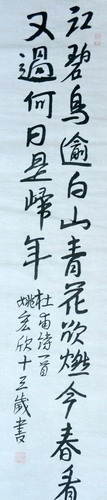 江碧鸟逾白山青花欲燃今春看
又過何日是歸年
杜甫诗一首
姚宏欣十三歲書